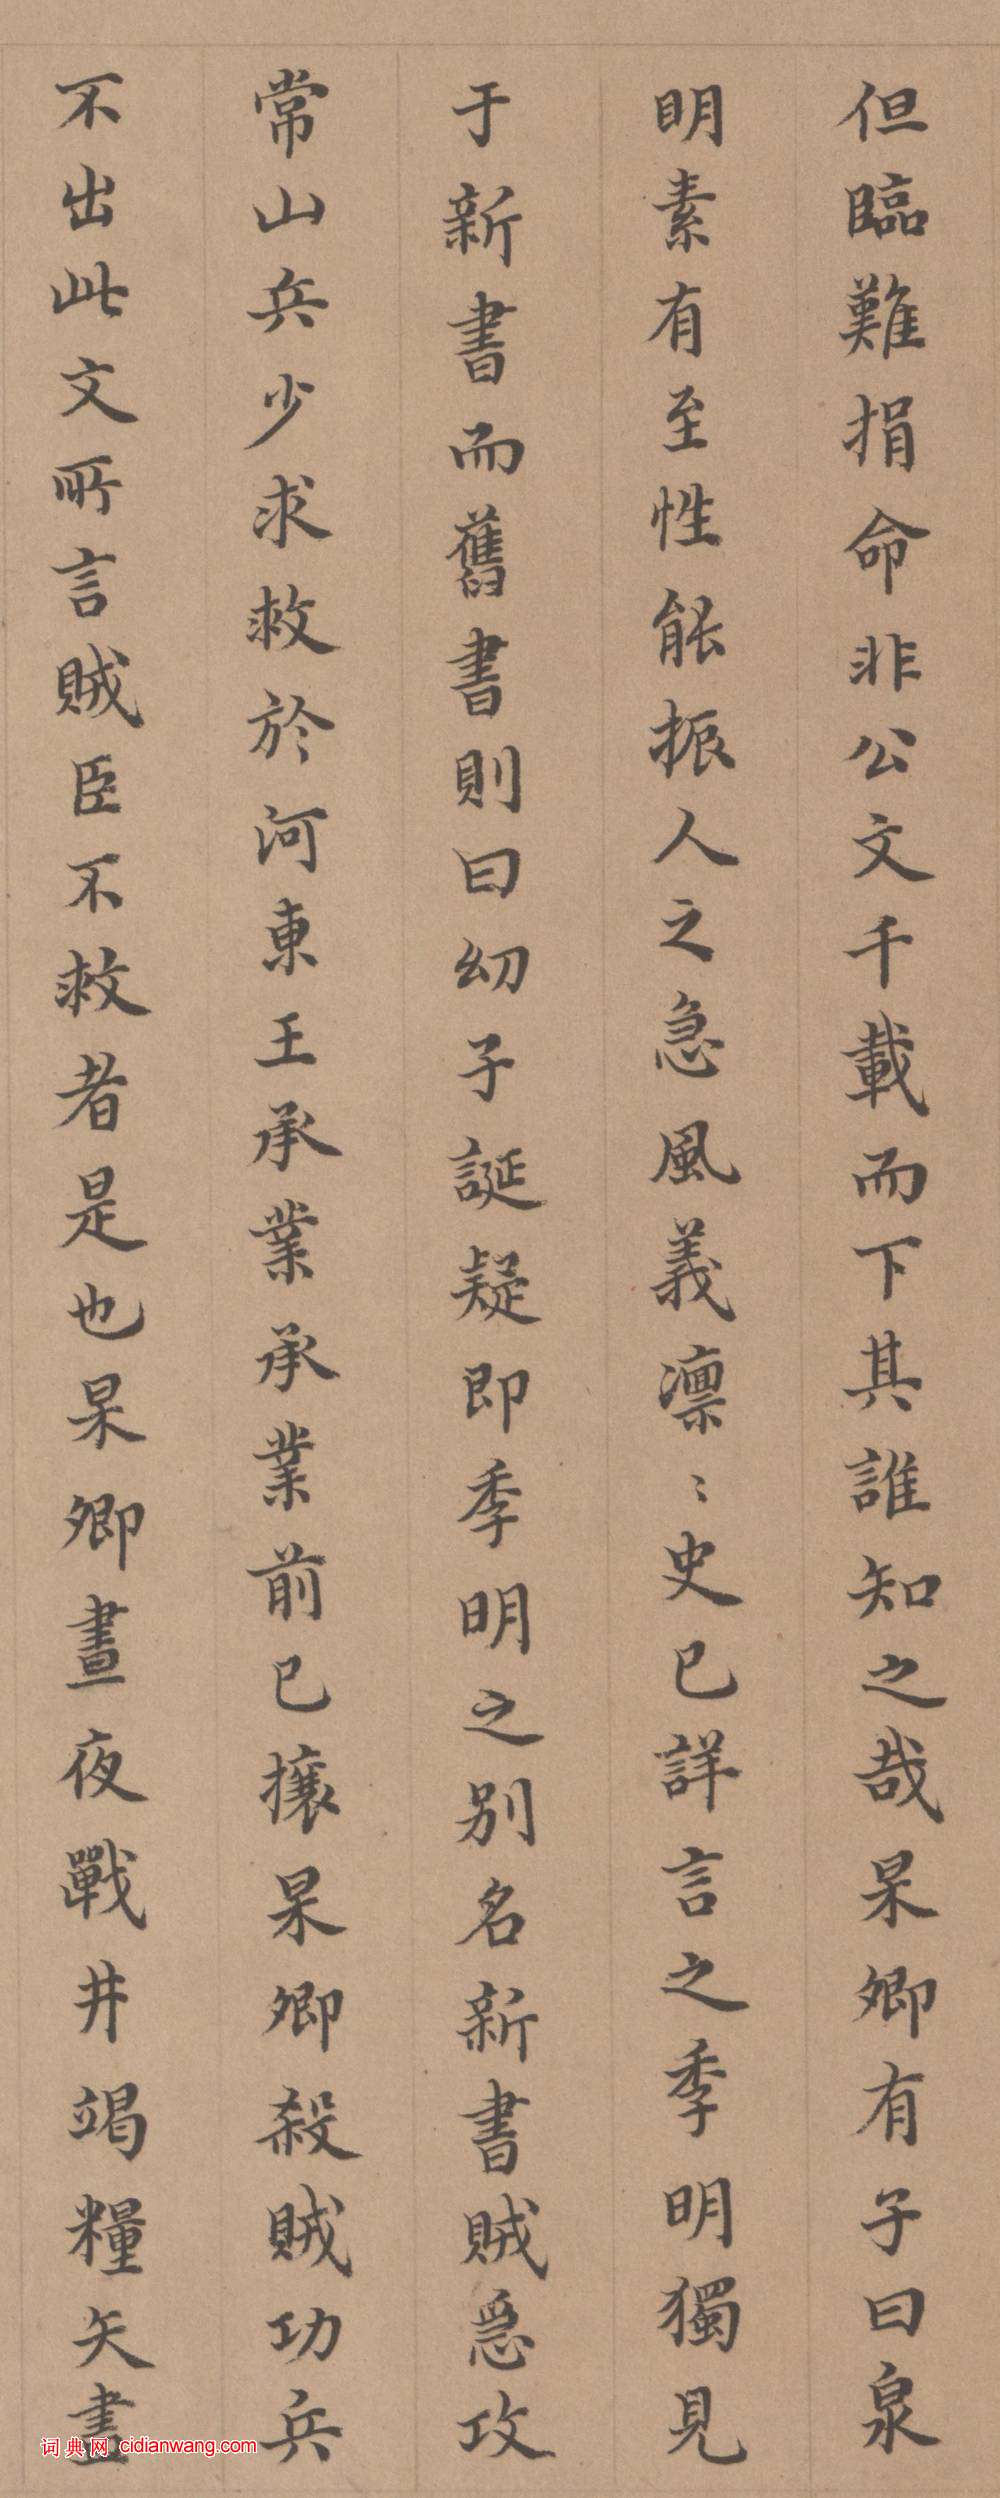 但臨難捐命非公文千載而下其誰知之哉杲卿有子曰泉
明素有至性能振人之急風義凛〻史已詳言之季明獨見
于新書而舊書則曰幼子誕疑即季明之别名新書賊急攻
常山兵少求救於河東王承業承業前已攘杲卿殺賊功兵
不出此文所言賊臣不救者是也杲卿晝夜戰井竭糧矢盡
词典网 cidianwang.com